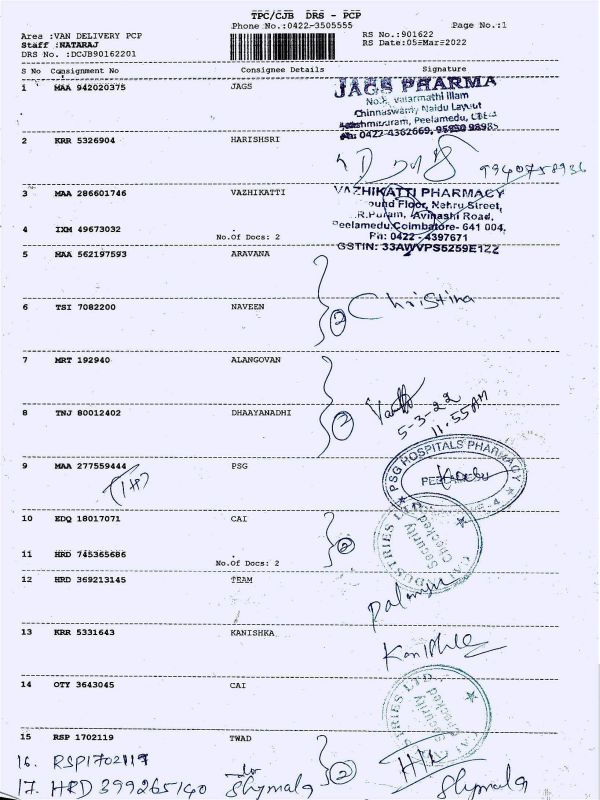 TPC/CJB DRS - PCP
Phone No.:0422-3505555 Page No.:1
Area :VAN DELIVERY PCP RS No.:901622
Staff :NATARAJ RS Date:05-Mar-2022
DRS No. :DCJB90162201
S No Consignment No Consignee Details Signature
1 MAA 942020375 JAGS
JAGS PHARMA
illam
Chinnaswamy Naidu Layout
Peelamedu,
Ph: 0422-4362669,
2 KRR 5326904 HARISHSRI
9940758936
3 MAA 286601746 VAZHIKATTI
VAZHIKATTI PHARMACY
Floor, Nehru Street,
R.Puram, Avinashi Road,
4 IXM 49673032
No.Of Docs: 2
Peelamedu, Coimbatore- 641 004.
Ph: 0422 - 4397671
GSTIN:
5 MAA 562197593 ARAVANA
2 Christina
6 TSI 7082200 NAVEEN
7 MRT 192940 ALANGOVAN
5-3-22
11.55AM
8 TNJ 80012402 DHAAYANADHI
2
9 MAA 277559444 PSG
PSG HOSPITALS PHARMACY
10 EDQ 18017071 CAI
2
Security
Checked
11 HRD 745365686
No.Of Docs: 2
12 HRD 369213145 TEAM
13 KRR 5331643 KANISHKA
14 OTY 3643045 CAI
Security
Checked
15 RSP 1702119 TWAD
16. RSP1702119
2
17. HRD 399265140 Shymala Shymala